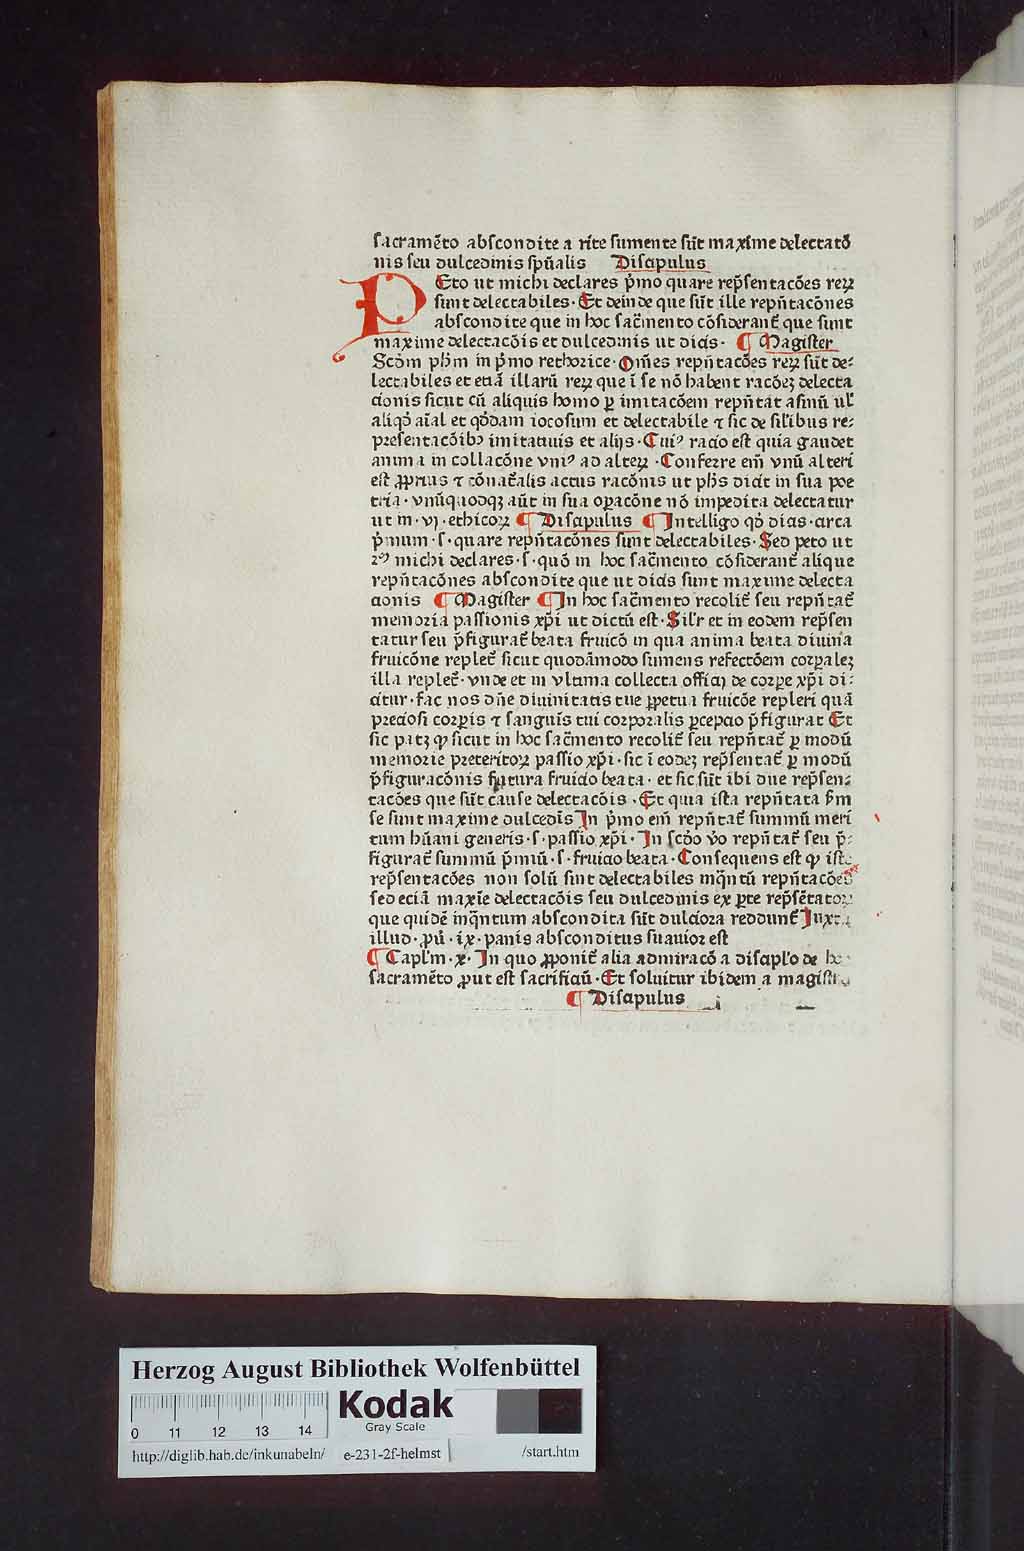 sacramēto abscondite a rite sumente sūt maxime delectatō
nis seu dulcedinis spūalis Discipulus
PEto ut michi declares p̄mo quare rep̄sentacōes reꝝ
sunt delectabiles · Et deinde que sūt ille repn̄tacōnes
abscondite que in hoc sac̄mento cōsiderant̄ que sunt
maxime delectacōis et dulcedinis ut dicis · ¶ Magister
Scd̄m ph̄m in p̄mo rethorice · Om̄es repn̄tacōes reꝝ sūt de-
lectabiles et etiā illarū reꝝ que ī se nō habent racōeꝫ delecta
cionis sicut cū aliquis homo ꝑ imitacōem repn̄tat asinū ul̄
aliqḋ aīal et qḋdam iocosum et delectabile ⁊ sic de sil̄ibus re-
presentacōibꝰ imitatiuis et alijs · Cuiꝰ racio est quia gaudet
anima in collacōne vniꝰ ad alteꝝ · Conferre em̄ vnū alteri
est ꝓprius ⁊ cōnat̄alis actus racōnis ut ph̄s dicit in sua poe
tria · vnūquodqꝫ aūt in sua oꝑacōne nō impedita delectatur
ut in · vj · ethicoꝝ ¶ Discipulus ¶ Intelligo qḋ dicis · circa
p̄mum · s · quare repn̄tacōnes sunt delectabiles · Sed peto ut
2º michi declares · s · quō in hoc sac̄mento cōsiderant̄ alique
repn̄tacōnes abscondite que ut dicis sunt maxime delecta
cionis ¶ Magister ¶ In hoc sac̄mento recolit̄ seu repn̄tat̄
memoria passionis xp̄i ut dictū est · Sil̄r et in eodem rep̄sen
tatur seu p̄figurat̄ beata fruicō in qua anima beata diuina
fruicōne replet̄ sicut quodāmodo sumens refectōem corꝑaleꝫ
illa replet̄ · vnde et in vltima collecta officij de corꝑe xp̄i di-
citur · fac nos dn̄e diuinitatis tue ꝑpetua fruicōe repleri quā
preciosi corꝑis ⁊ sanguis tui corporalis ꝑcepcio p̄figurat Et
sic patꝫ ꝙ sicut in hoc sac̄mento recolit̄ seu repn̄tat̄ ꝑ modū
memorie preteritoꝝ passio xp̄i · sic ī eodeꝫ rep̄sentat̄ ꝑ modū
p̄figuracōnis futura fruicio beata · et sic sūt ibi due rep̄sen-
tacōes que sūt cause delectacōis · Et quia ista repn̄tata s̄m
se sunt maxime dulcedīs In p̄mo em̄ repn̄tat̄ summū meri
tum hūani generis · s · passio xp̄i · In scḋo v̄o repn̄tat̄ seu p̄-
figurat̄ summū p̄miū · s · fruicio beata · Consequens est ꝙ iste
rep̄sentacōes non solū sint delectabiles inq̄ntū repn̄tacōes
sed eciā maxīe delectacōis seu dulcedinis ex ꝑte rep̄sētatoꝝ
que quidē inq̄ntum abscondita sūt dulciora reddunt̄ Juxta
illud · ꝓū · ix · panis absconditus suauior est
¶ Capl̄m · x · In quo ꝓponit̄ alia admiracō a discipl̄o de ho
sacramēto ꝓut est sacrificiū · Et soluitur ibidem a magistro
¶ Discipulus
Herzog August Bibliothek Wolfenbüttel
0 11 12 13 14
Kodak
Gray Scale
http://diglib.hab.de/inkunabeln/ e-231-2f-helmst /start.htm